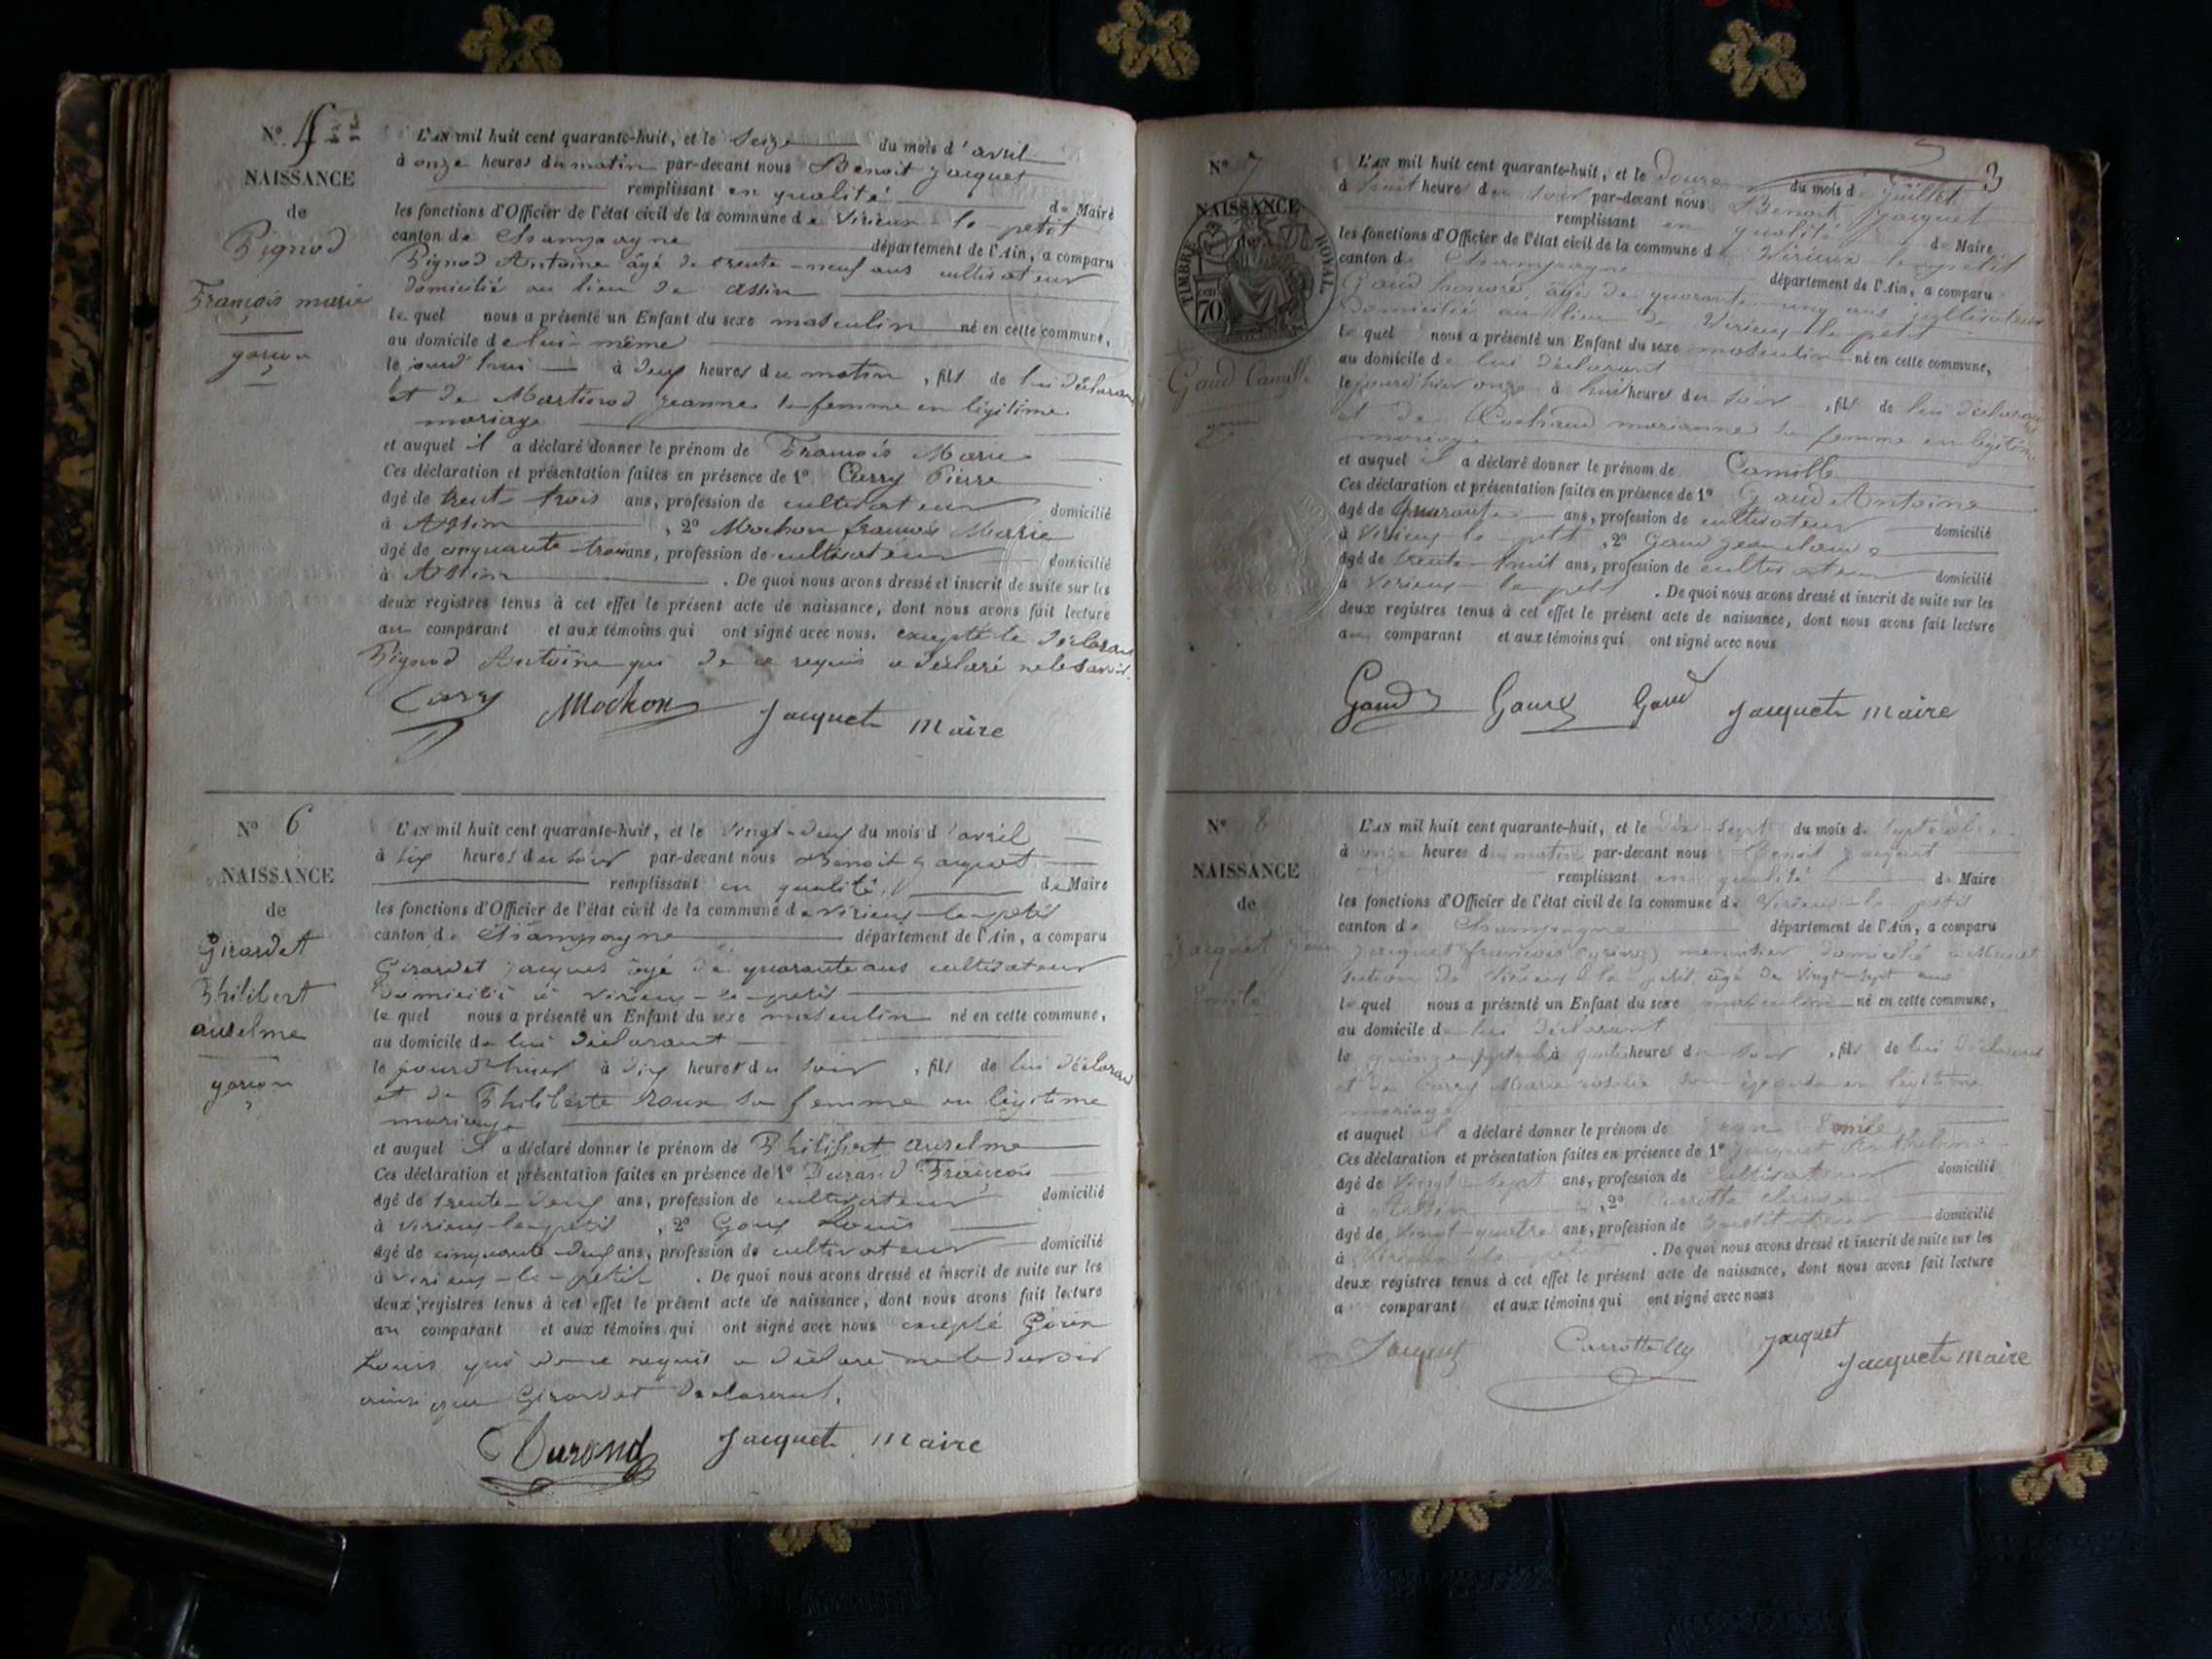 NAISSANCE
de
Pignod
François marie
garçon
L'AN mil huit cent quarante-huit, et le Seize du mois d'avril
à onze heures du matin par-devant nous Benoit Jacquet
remplissant en qualité de Maire
les fonctions d'Officier de l'état civil de la commune de Virieux-le-petit
canton de Champagne département de l'Ain, a comparu
Pignod Antoine âgé de trente-neuf ans cultivateur
domicilié au lieu de Assin
lequel nous a présenté un Enfant du sexe masculin né en cette commune,
au domicile de lui-même
le jourd'hui à deux heures du matin, fils de lui déclarant
et de Martinod jeanne sa femme en légitime
mariage
et auquel il a déclaré donner le prénom de François Marie
Ces déclaration et présentation faites en présence de 1º Carry Pierre
âgé de trente-trois ans, profession de cultivateur domicilié
à Assin, 2º Mochon françois Marie
âgé de cinquante-trois ans, profession de cultivateur domicilié
à Assin. De quoi nous avons dressé et inscrit de suite sur les
deux registres tenus à cet effet le présent acte de naissance, dont nous avons fait lecture
au comparant et aux témoins qui ont signé avec nous. excepté le déclarant
Pignod Antoine qui de ce requis a déclaré ne le savoir.
Carry Mochon Jacquet Maire
Nº 6
NAISSANCE
de
Girardet
Philibert
anselme
garçon
L'AN mil huit cent quarante-huit, et le vingt-deux du mois d'avril
à six heures du soir par-devant nous Benoit Jacquet
remplissant en qualité de Maire
les fonctions d'Officier de l'état civil de la commune de Virieux-le-petit
canton de Champagne département de l'Ain, a comparu
Girardet jacques âgé de quarante ans cultivateur
domicilié à virieux-le-petit
lequel nous a présenté un Enfant du sexe masculin né en cette commune,
au domicile de lui déclarant
le jourd'hier à dix heures du soir, fils de lui déclarant
et de Philiberte roux sa femme en légitime
mariage
et auquel il a déclaré donner le prénom de Philibert anselme
Ces déclaration et présentation faites en présence de 1º Durand François
âgé de trente-deux ans, profession de cultivateur domicilié
à virieux-le-petit, 2º Louis
âgé de cinquante-deux ans, profession de cultivateur domicilié
à virieux-le-petit. De quoi nous avons dressé et inscrit de suite sur les
deux registres tenus à cet effet le présent acte de naissance, dont nous avons fait lecture
au comparant et aux témoins qui ont signé avec nous excepté
Louis qui de ce requis a déclaré ne le savoir
ainsi que Girardet déclarant.
Durand Jacquet Maire
3
Nº 7
NAISSANCE
de
TIMBRE ROYAL
70
Gaud Camille
garçon
L'AN mil huit cent quarante-huit, et le douze du mois de Juillet
à huit heures du soir par-devant nous Benoit Jacquet
remplissant en qualité de Maire
les fonctions d'Officier de l'état civil de la commune de Virieux-le-petit
canton de Champagne département de l'Ain, a comparu
Gaud honoré, âgé de quarante-cinq ans cultivateur
Domicilié au lieu de Virieux-le-petit
lequel nous a présenté un Enfant du sexe masculin né en cette commune,
au domicile de lui déclarant
le jourd'hier onze à huit heures du soir, fils de lui déclarant
et de marianne sa femme en légitime
mariage
et auquel il a déclaré donner le prénom de Camille
Ces déclaration et présentation faites en présence de 1º Gaud Antoine
âgé de quarante ans, profession de cultivateur domicilié
à Virieux-le-petit, 2º Gaud jean claude
âgé de trente-huit ans, profession de cultivateur domicilié
à Virieux-le-petit. De quoi nous avons dressé et inscrit de suite sur les
deux registres tenus à cet effet le présent acte de naissance, dont nous avons fait lecture
au comparant et aux témoins qui ont signé avec nous
Gaud Gaud Gaud Jacquet Maire
Nº 8
NAISSANCE
de
Jacquet Jean
Emile
L'AN mil huit cent quarante-huit, et le dix-sept du mois de Septembre
à onze heures du matin par-devant nous Benoit Jacquet
remplissant en qualité de Maire
les fonctions d'Officier de l'état civil de la commune de Virieux-le-petit
canton de Champagne département de l'Ain, a comparu
Jacquet françois menuisier domicilié à
section de Virieux-le-petit âgé de vingt-sept ans
lequel nous a présenté un Enfant du sexe masculin né en cette commune,
au domicile de lui déclarant
le quinze à quatre heures du soir, fils de lui déclarant
et de Carry Marie rosalie son épouse en légitime
mariage
et auquel il a déclaré donner le prénom de Jean Emile
Ces déclaration et présentation faites en présence de 1º Jacquet Anthelme
âgé de vingt-sept ans, profession de Cultivateur domicilié
à Assin, 2º
âgé de vingt-quatre ans, profession de Instituteur domicilié
à Virieux-le-petit. De quoi nous avons dressé et inscrit de suite sur les
deux registres tenus à cet effet le présent acte de naissance, dont nous avons fait lecture
a comparant et aux témoins qui ont signé avec nous
Jacquet Jacquet
Jacquet Maire